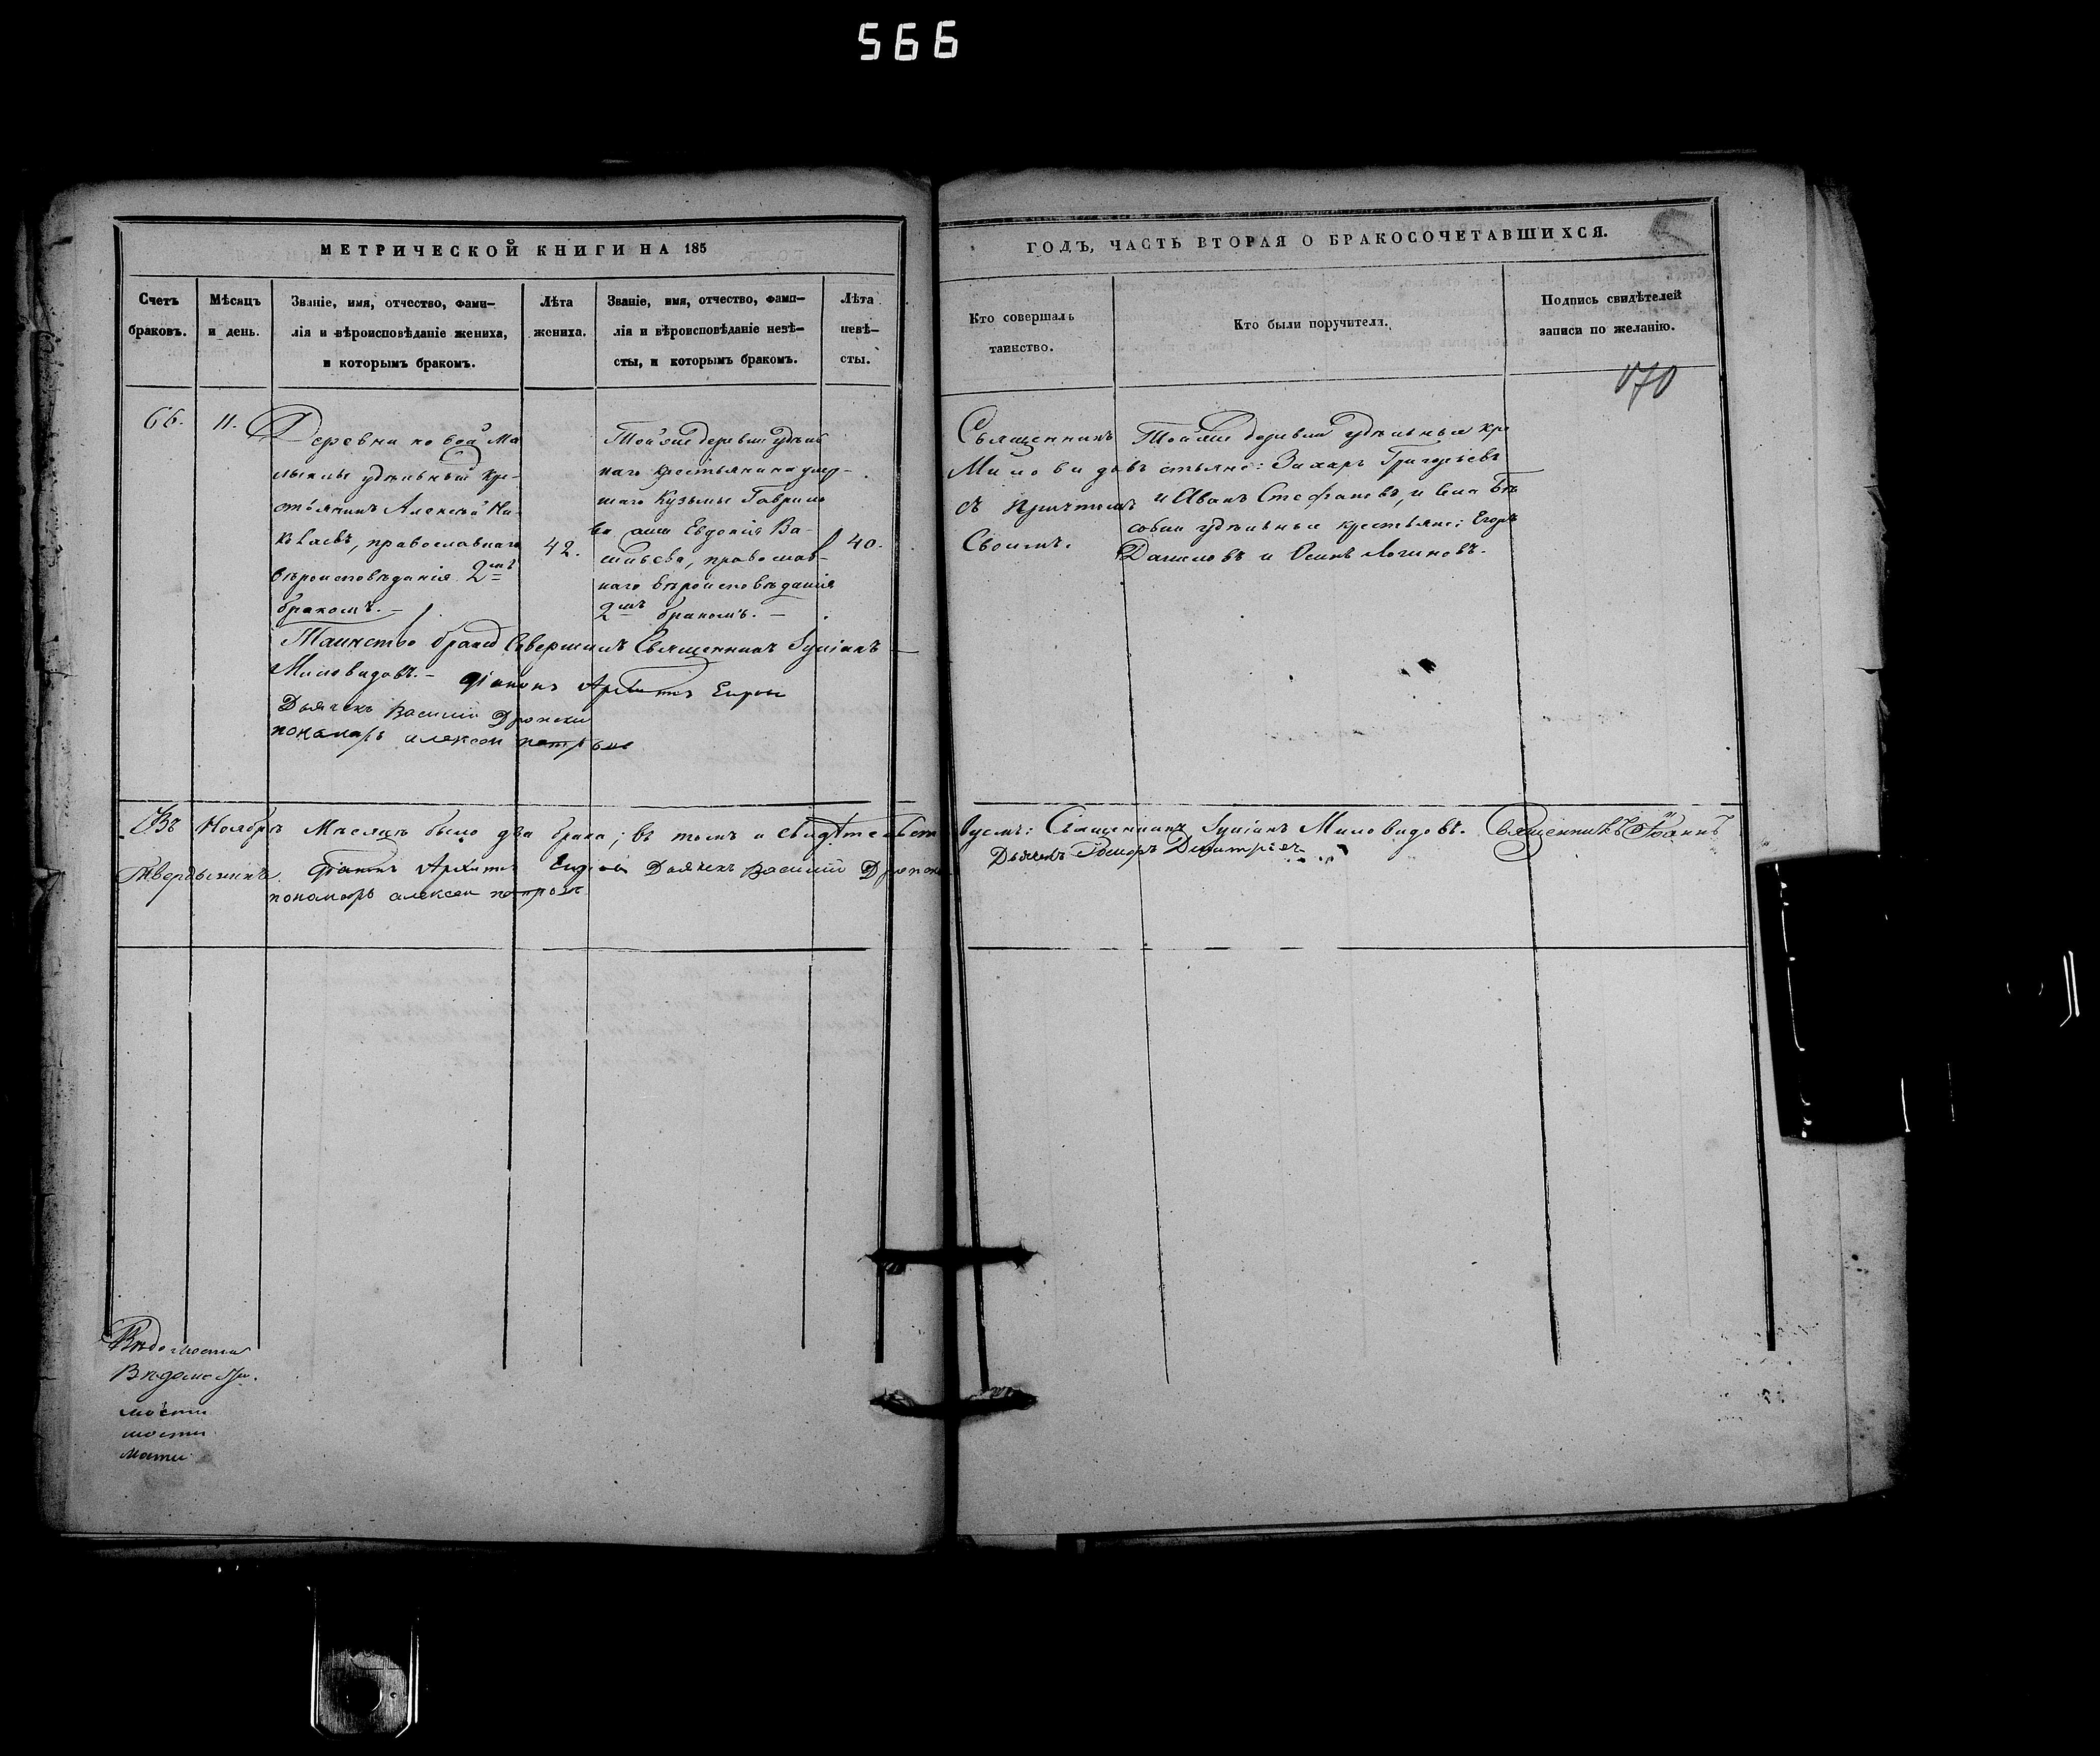 566
МЕТРИЧЕСКОЙ КНИГИ НА 185
ГОДЪ, ЧАСТЬ ВТОРАЯ О БРАКОСОЧЕТАВШИХСЯ.
Счетъ
браковъ.
Мѣсяцъ
и день.
Званіе, имя, отчество, фами-
лія и вѣроисповѣданіе жениха,
и которымъ бракомъ.
Лѣта
жениха.
Званіе, имя, отчество, фами-
лія и вѣроисповѣданіе невѣ-
сты, и которымъ бракомъ.
Лѣта
невѣ-
сты.
Кто совершалъ
таинство.
Кто были поручители.
Подпись свидѣтелей
записи по желанію.
170
66.
11.
Деревни новой Ма
лыклы удѣльный кре-
стьянинъ Алексѣй Ни-
православнаго
вѣроисповѣданія 2мъ
бракомъ.
42.
Той же деревни удѣль
наго крестьянина умер-
шаго Кузьмы Гаврило
ва жена Евдокія Ва-
сильева, православ-
наго вѣроисповѣданія
2мъ бракомъ.
40.
Священникъ
Миловидовъ
съ причтомъ
Своимъ.
Той же деревни удѣльные кре
стьяне: Захаръ Григорьевъ
и Иванъ Стефановъ, и села
удѣльные крестьяне: Егоръ
Даниловъ и Осипъ Логиновъ.
Таинство брака Совершилъ Священникъ Іуліанъ
Миловидовъ. Діаконъ
Дьячекъ Василій
пономарь алексей петровъ
Въ Ноябрѣ Мѣсяцѣ было два брака; въ томъ и свидѣтельствуемъ: Священникъ Іуліанъ Миловидовъ. Священникъ Іоаннъ
Твердышинъ. Діаконъ Дьячекъ Василій
Дьячекъ Димитріевъ
пономарь алексей петровъ
Вѣдомости
мости
мости